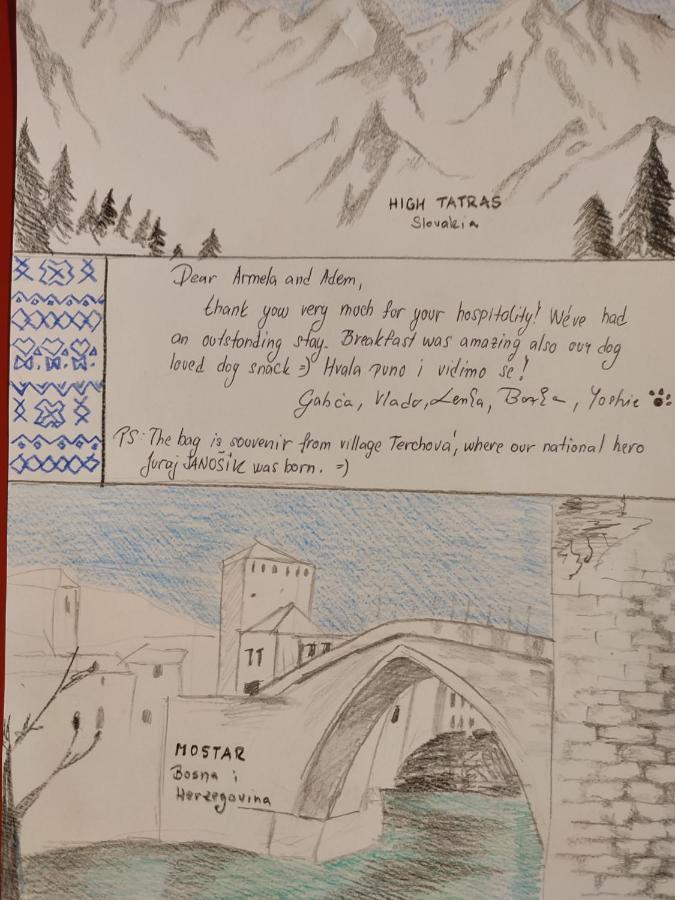 HIGH TATRAS
Slovakia
Dear Armela and Adem,
thank you very much for your hospitality! We've had
an outstanding stay. Breakfast was amazing also our dog
loved dog snack =) Hvala puno i vidimo se!
Gabča, Vlado, Lenka, Borka, Yoshie
PS: The bag is souvenir from village Terchová, where our national hero
Juraj JÁNOŠÍK was born. =)
MOSTAR
Bosna i
Herzegovina